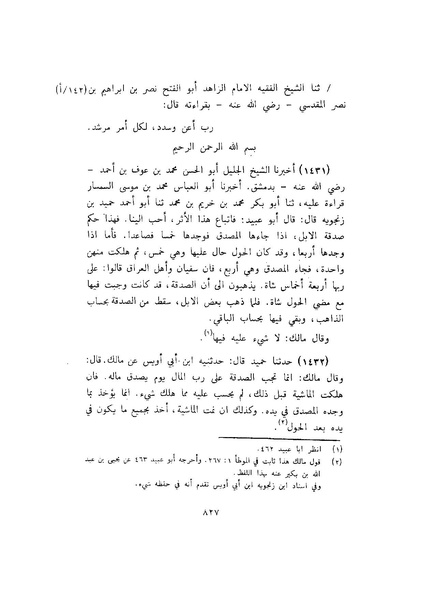 / ثنا الشيخ الفقيه الامام الزاهد أبو الفتح نصر بن ابراهيم بن (١٤٢/أ)
نصر المقدسي – رضي الله عنه – بقراءته قال:
رب أعن وسدد، لكل أمر مرشد.
بسم الله الرحمن الرحيم
(١٤٣١) أخبرنا الشيخ الجليل أبو الحسن محمد بن عوف بن أحمد –
رضي الله عنه – بدمشق. أخبرنا أبو العباس محمد بن موسى السمسار
قراءة عليه، ثنا أبو بكر محمد بن خريم بن محمد ثنا أبو أحمد حميد بن
زنجويه قال: قال أبو عبيد: فاتباع هذا الأثر، أحب الينا. فهذا حكم
صدقة الابل، اذا جاءها المصدق فوجدها خمسا فصاعدا. فأما اذا
وجدها أربعا، وقد كان الحول حال عليها وهي خمس، ثم هلكت منهن
واحدة، فجاء المصدق وهي أربع، فان سفيان وأهل العراق قالوا: على
ربها أربعة أخماس شاة. يذهبون الى أن الصدقة، قد كانت وجبت فيها
مع مضي الحول شاة. فلما ذهب بعض الابل، سقط من الصدقة بحساب
الذاهب، وبقي فيها بحساب الباقي.
وقال مالك: لا شيء عليه فيها(١).
(١٤٣٢) حدثنا حميد قال: حدثنيه ابن أبي أويس عن مالك. قال:
وقال مالك: انما تجب الصدقة على رب المال يوم يصدق ماله. فان
هلكت الماشية قبل ذلك، لم يحسب عليه مما هلك شيء. انما يؤخذ بما
وجده المصدق في يده. وكذلك ان نمت الماشية، أخذ بجميع ما يكون في
يده بعد الحول(٢).
(١) انظر ابا عبيد ٤٦٢.
(٢) قول مالك هذا ثابت في الموطأ ١: ٢٦٧. وأخرجه أبو عبيد ٤٦٣ عن يحيى بن عبد
الله بن بكير عنه بهذا اللفظ.
وفي اسناد ابن زنجويه ابن أبي أويس تقدم أنه في حفظه شيء.
٨٢٧